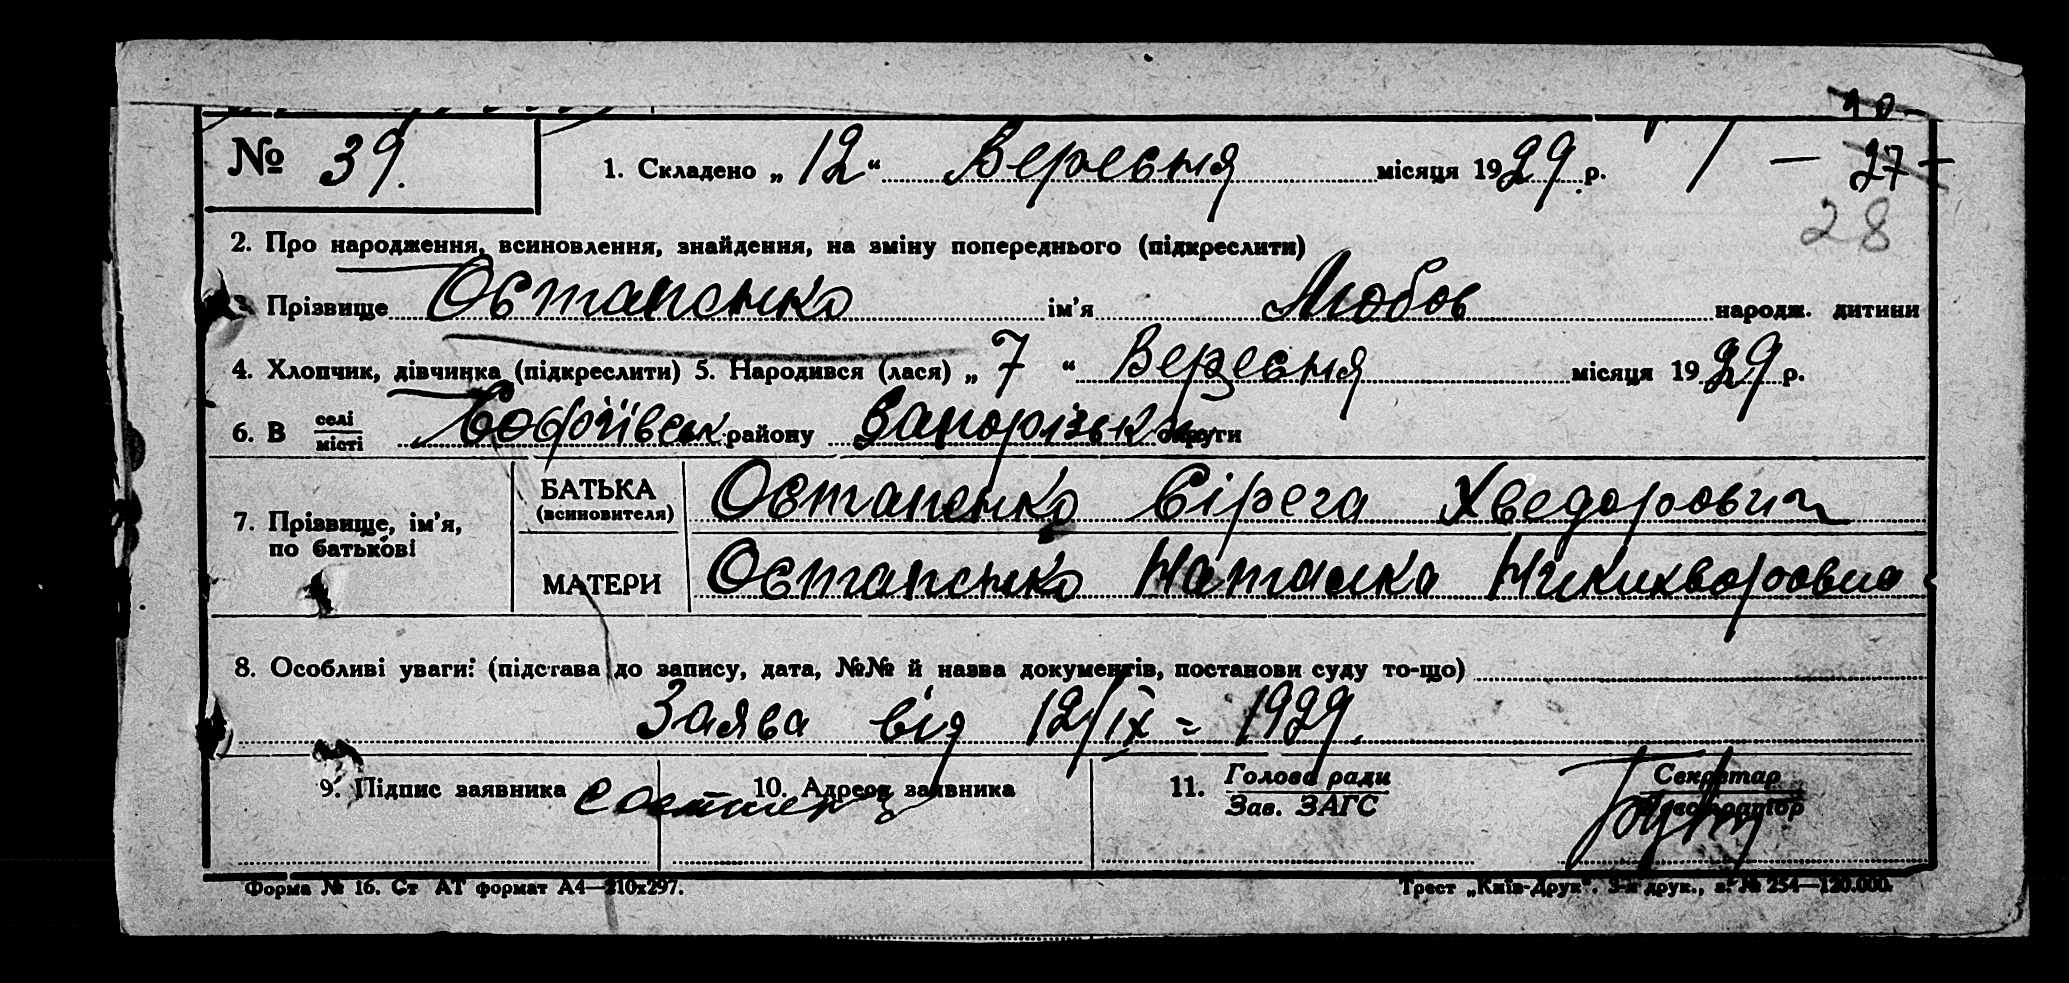 10
№ 39. 1. Складено „ 12 “ Вересня місяця 1929 р. 1 — 27 —
28
2. Про народження, всиновлення, знайдення, на зміну попереднього (підкреслити)
3. Прізвище Остапенко ім’я Любов народж. дитини
4. Хлопчик, дівчинка (підкреслити) 5. Народився (лася) „ 7 “ Вересня місяця 1929 р.
6. В селі/місті Софіївськ району Запорізьк округи
7. Прізвище, ім’я, по батькові
БАТЬКА (всиновителя) Остапенко Сірега Хведорович
МАТЕРИ Остапенко Наталка Никихворовна
8. Особливі уваги: (підстава до запису, дата, №№ й назва документів, постанови суду то-що)
Заява від 12/ІХ = 1929.
9. Підпис заявника 10. Адреса заявника 11. Голова ради/Зав. ЗАГС Секретар/Діловод
Форма № 16. Ст АТ формат А4—210х297. Трест „Київ-Друк“. 3-я друк., з. № 254—120.000.